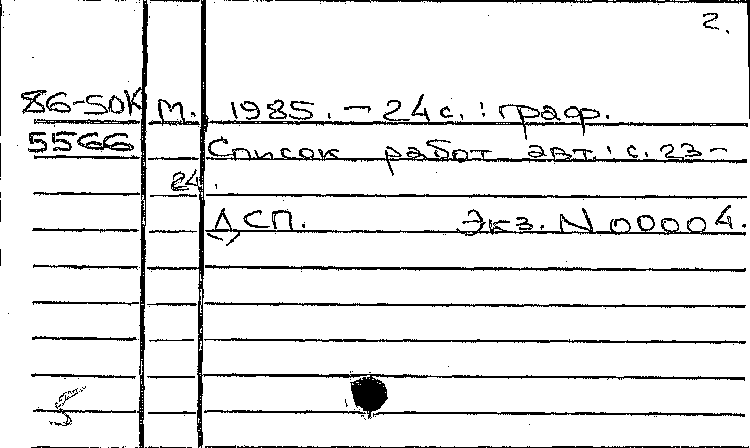 2.
86-50К М., 1985. - 24 с. : граф.
5566 Список работ авт.: с. 23-
24.
ДСП. Экз. N 00004.
5